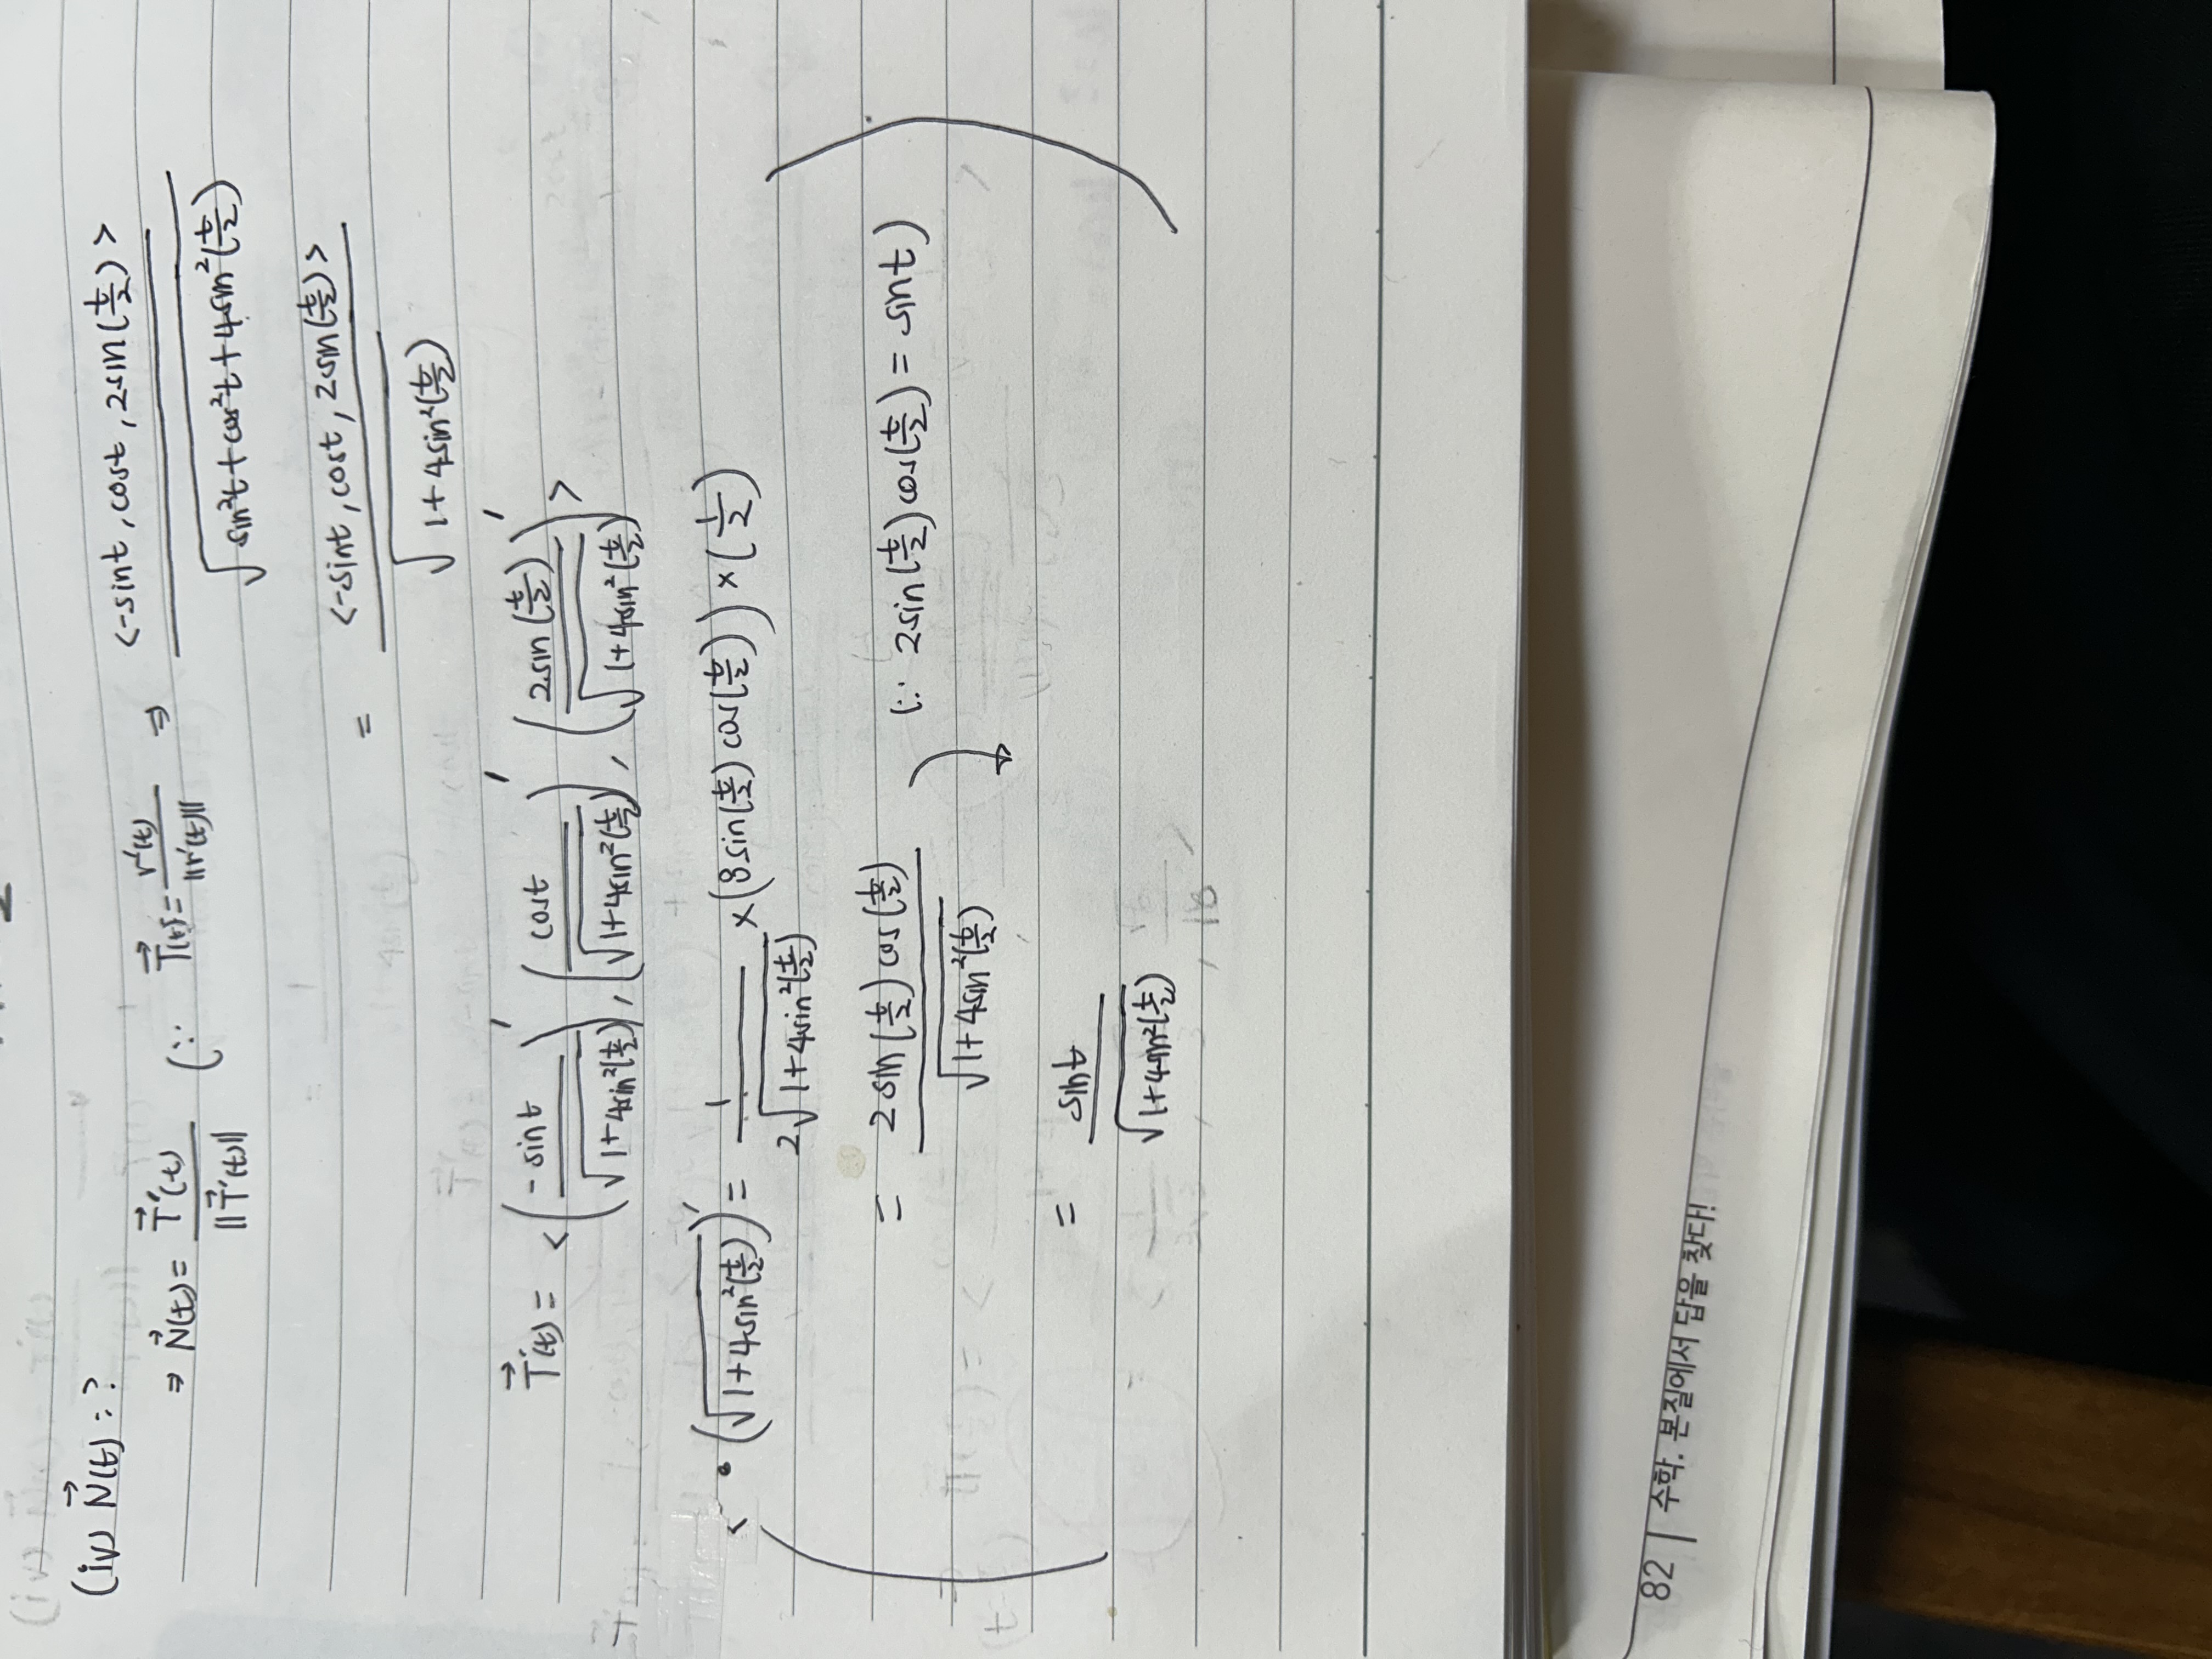 (iv) N⃗(t) = ?
⇒ N⃗(t) = T⃗'(t) / ||T⃗'(t)|| (∵ T⃗(t) = r'(t) / ||r'(t)|| ⇒ <-sint, cost, 2sin(t/2)> / √(sin²t + cos²t + 4sin²(t/2))
= <-sint, cost, 2sin(t/2)> / √(1+4sin²(t/2))
T⃗'(t) = <(-sint / √(1+4sin²(t/2)))', (cost / √(1+4sin²(t/2)))', (2sin(t/2) / √(1+4sin²(t/2)))'>
(√(1+4sin²(t/2)))' = 1 / 2√(1+4sin²(t/2)) × (8sin(t/2)cos(t/2)) × (1/2)
= 2sin(t/2)cos(t/2) / √(1+4sin²(t/2)) (∵ 2sin(t/2)cos(t/2) = sint)
= sint / √(1+4sin²(t/2))
82 | 수학. 본질에서 답을 찾다!